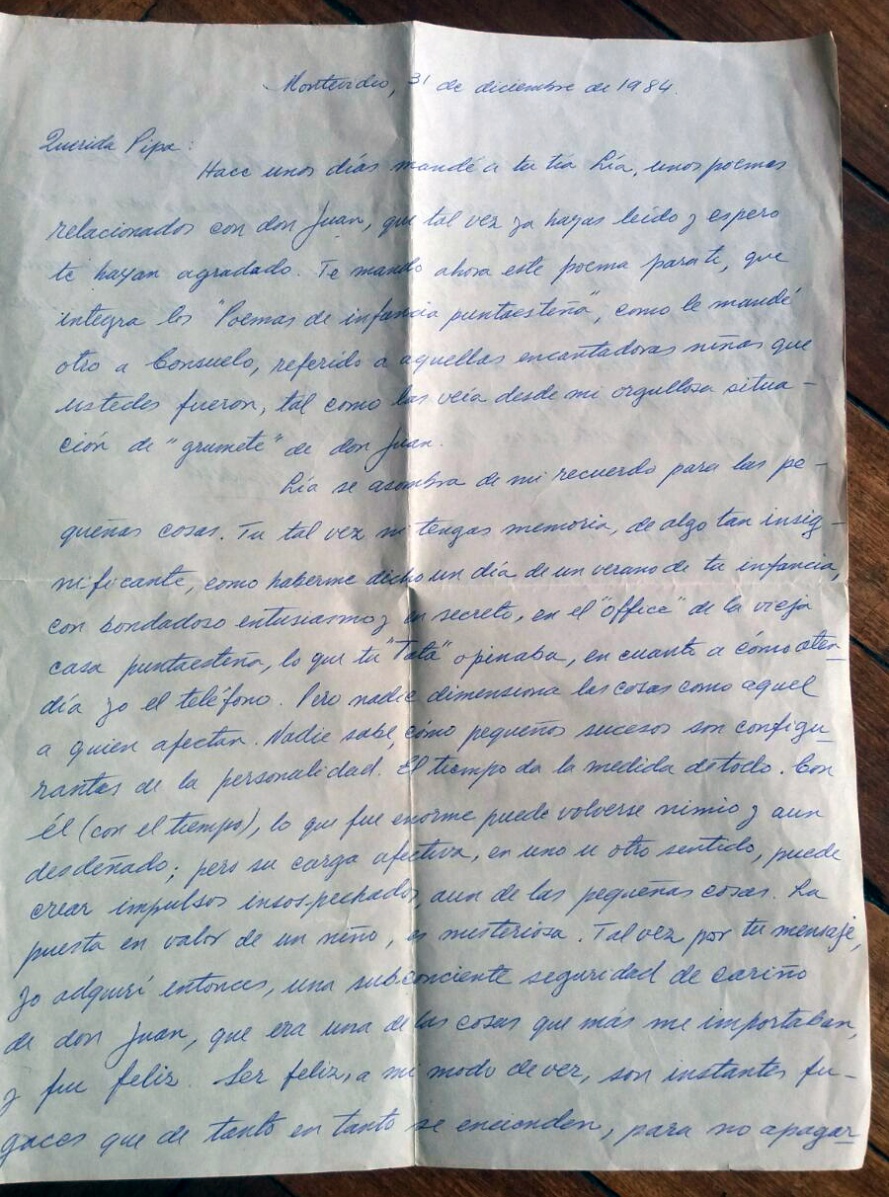 Montevideo, 31 de diciembre de 1984.
Querida Pipa:
Hace unos días mandé a tu tía Lía, unos poemas
relacionados con don Juan, que tal vez ya hayas leído y espero
te hayan agradado. Te mando ahora este poema para ti, que
integra los "Poemas de infancia puntaesteña", como le mandé
otro a Consuelo, referido a aquellas encantadoras niñas que
ustedes fueron, tal como las veía desde mi orgullosa situa-
ción de "grumete" de don Juan.
Lía se asombra de mi recuerdo para las pe-
queñas cosas. Tu tal vez ni tengas memoria, de algo tan insig-
nificante, como haberme dicho un día de un verano de tu infancia,
con bondadoso entusiasmo y en secreto, en el "office" de la vieja
casa puntaesteña, lo que tu "Tata" opinaba, en cuanto a cómo aten-
día yo el teléfono. Pero nadie dimensiona las cosas como aquel
a quien afectan. Nadie sabe, cómo pequeños sucesos son configu-
rantes de la personalidad. El tiempo da la medida de todo. Con
él (con el tiempo), lo que fue enorme puede volverse nimio y aun
desdeñado; pero su carga afectiva, en uno u otro sentido, puede
crear impulsos insospechados, aun de las pequeñas cosas. La
puesta en valor de un niño, es misteriosa. Tal vez por tu mensaje,
yo adquirí entonces, una subconciente seguridad de cariño
de don Juan, que era una de las cosas que más me importaban,
y fui feliz. Ser feliz, a mi modo de ver, son instantes fu-
gaces que de tanto en tanto se encienden, para no apagar